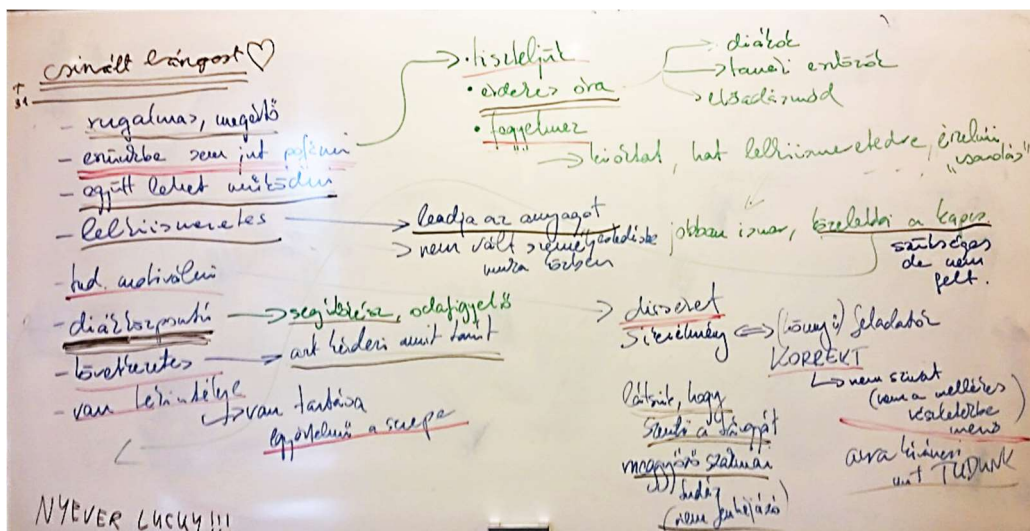 csinált lángost ♡
- rugalmas, megértő
- eszünkbe sem jut pofázni
- együtt lehet működni
- lelkiismeretes
- tud motiválni
- diákközpontú
- következetes
- van tekintélye
→ tiszteljük
• érdekes óra
• fegyelmez
→ diákok
→ tanári eszközök
→ előadásmód
→ kioktat, hat lelkiismeretedre, érzelmi
"zsarolás"
→ leadja az anyagot
> nem vált személyeskedésbe
munka közben
jobban ismer, közeledni a kapcs
szükséges
de nem
felt.
→ segítőkész, odafigyelő
→ azt kérdezi amit tanít
↳ van tartása
egyértelmű a szerepe
→ diszkrét
sikerélmény ⇔ (könnyű) feladatok
KORREKT
↳ nem szívat
(nem a mellékes
részletekbe
menő
látszik, hogy
szereti a tárgyát
meggyőző szakmai
tudás
(nem fenhéjázó)
arra kíváncsi
mit TUDUNK
NYEVER LUCKY!!!